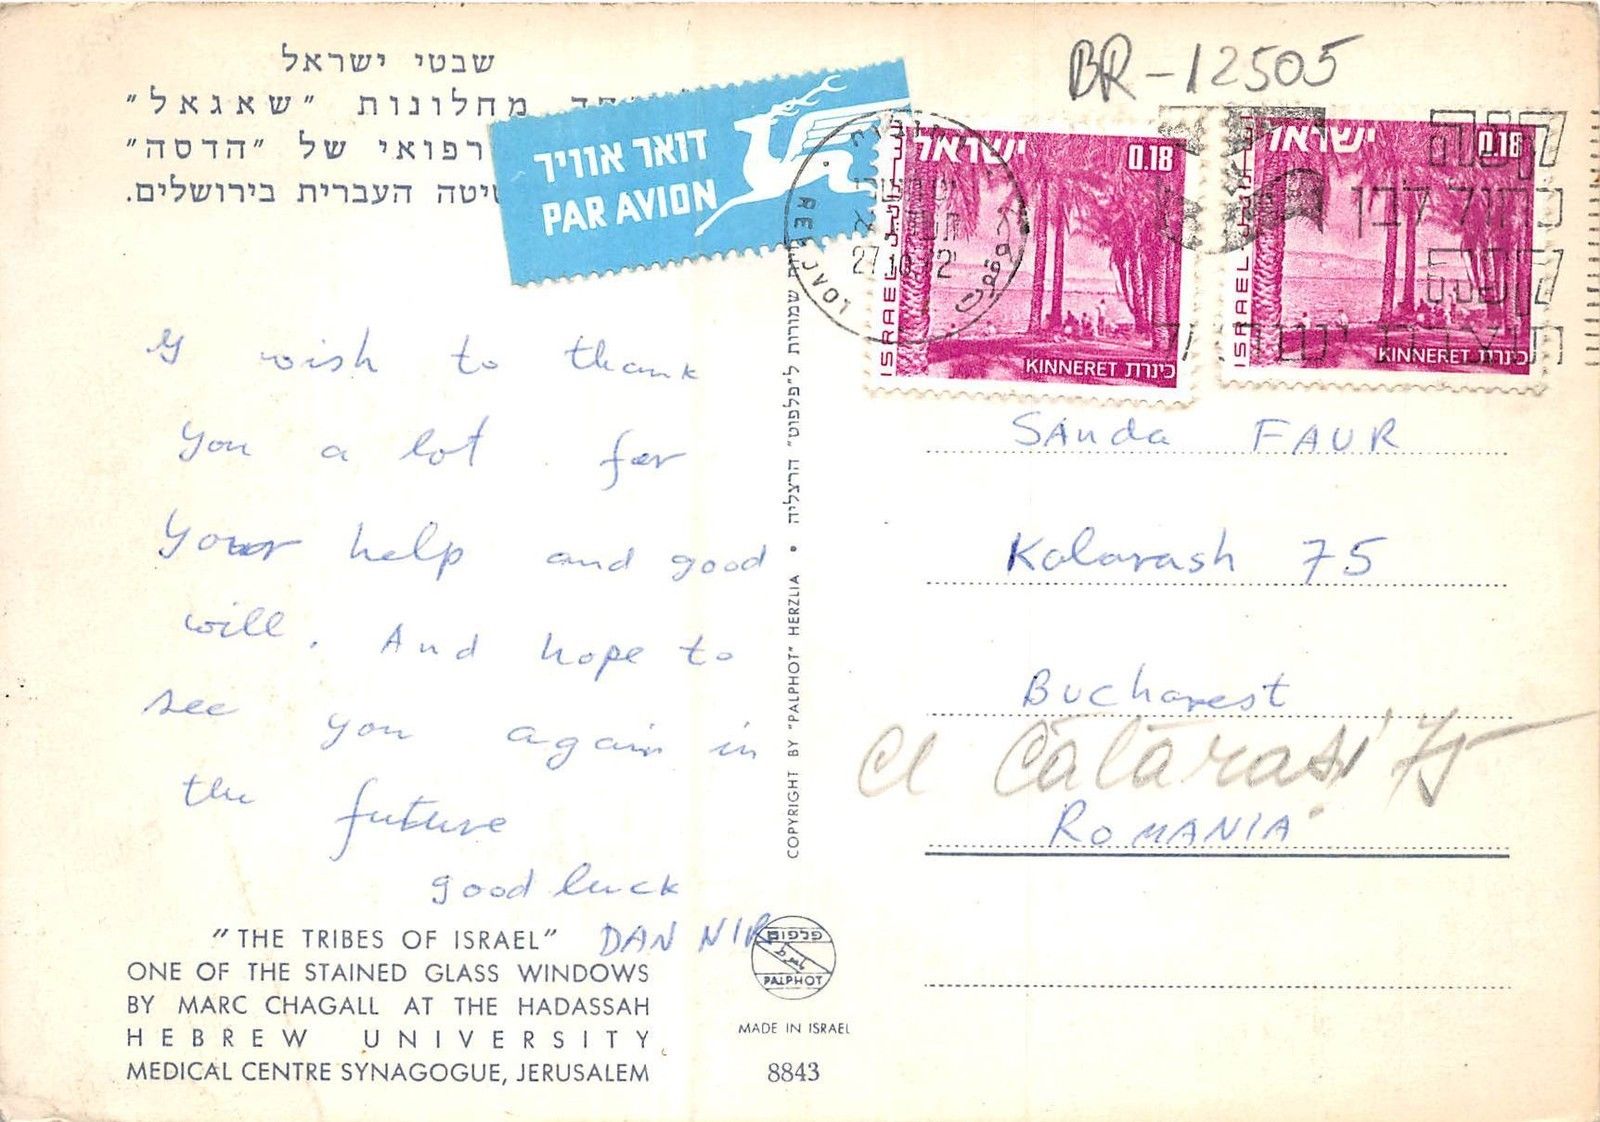 שבטי ישראל
מחלונות "שאגאל"
רפואי של "הדסה"
העברית בירושלים.
דואר אוויר
PAR AVION
BR-12505
ישראל 0.18
ISRAEL
KINNERET כינרת
ישראל 0.18
ISRAEL
KINNERET כינרת
REHOVOT
27.10.72
קנה
כחול לבן
קנה
תוצרת ישראל
I wish to thank
you a lot for
your help and good
will. And hope to
see you again in
the future
good luck
DAN NIR
"THE TRIBES OF ISRAEL"
ONE OF THE STAINED GLASS WINDOWS
BY MARC CHAGALL AT THE HADASSAH
HEBREW UNIVERSITY
MEDICAL CENTRE SYNAGOGUE, JERUSALEM
COPYRIGHT BY "PALPHOT" HERZLIA • שמורות ל"פלפוט" הרצליה
פלפוט
PALPHOT
MADE IN ISRAEL
8843
Sanda FAUR
Kalarash 75
Bucharest
Cl Călărași 75
ROMANIA